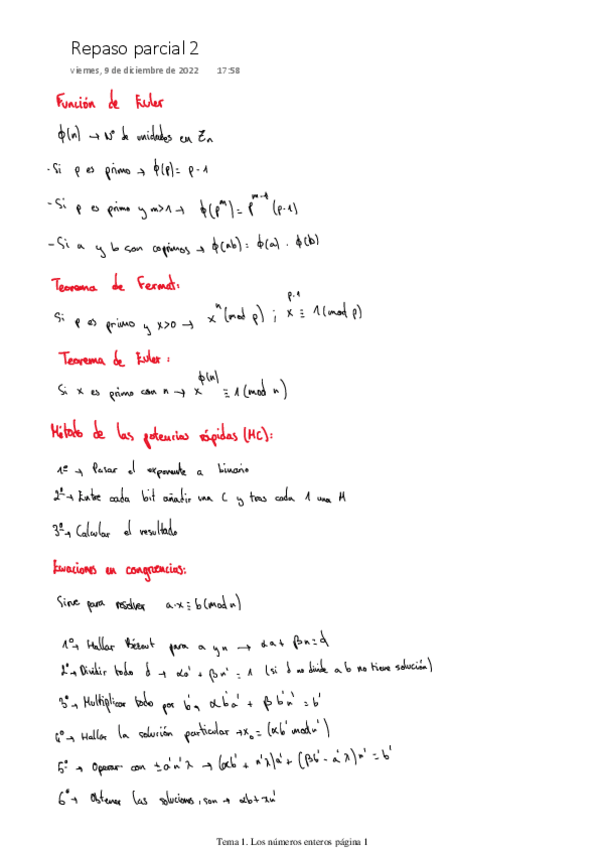 Repaso parcial 2
viernes, 9 de diciembre de 2022 17:58
Función de Euler
ϕ(n) → Nº de unidades en Zn
- Si p es primo → ϕ(p) = p-1
- Si p es primo y m>1 → ϕ(p^m) = p^(m-1) (p-1)
- Si a y b son coprimos → ϕ(ab) = ϕ(a) · ϕ(b)
Teorema de Fermat:
Si p es primo y x>0 → x^n (mod p) ; x^(p-1) ≡ 1 (mod p)
Teorema de Euler:
Si x es primo con n → x^ϕ(n) ≡ 1 (mod n)
Método de las potencias rápidas (MC):
1º → Pasar el exponente a binario
2º → Entre cada bit añadir una C y tras cada 1 una M
3º → Calcular el resultado
Ecuaciones en congruencias:
Sirve para resolver a·x ≡ b (mod n)
1º → Hallar Bézout para a y n → αa + βn = d
2º → Dividir todo d → αa' + βn' = 1 (si d no divide a b no tiene solución)
3º → Multiplicar todo por b' → αb'a' + βb'n' = b'
4º → Hallar la solución particular → x₀ = (αb' mod n')
5º → Operar con ±a'n'λ → (αb' + n'λ)a' + (βb' - a'λ)n' = b'
6º → Obtener las soluciones, son → αb + λn'
Tema 1. Los números enteros página 1